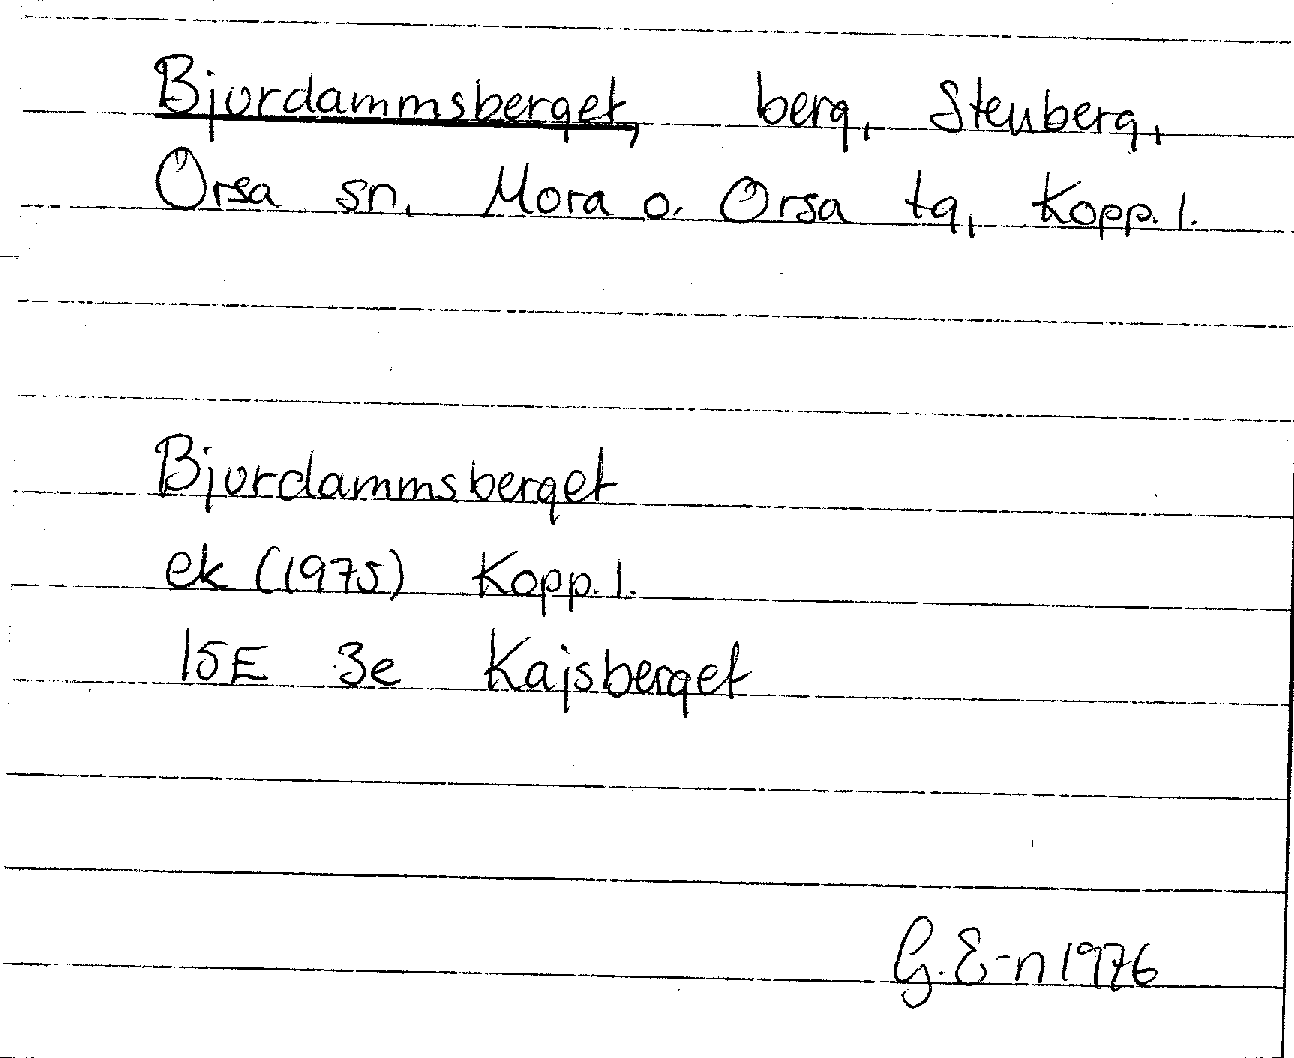 Bjurdammsberget, berg, Stenberg,
Orsa sn, Mora o. Orsa tg, Kopp. l.
Bjurdammsberget
ek (1975) Kopp. l.
15E 3e Kajsberget
G. E-n 1976